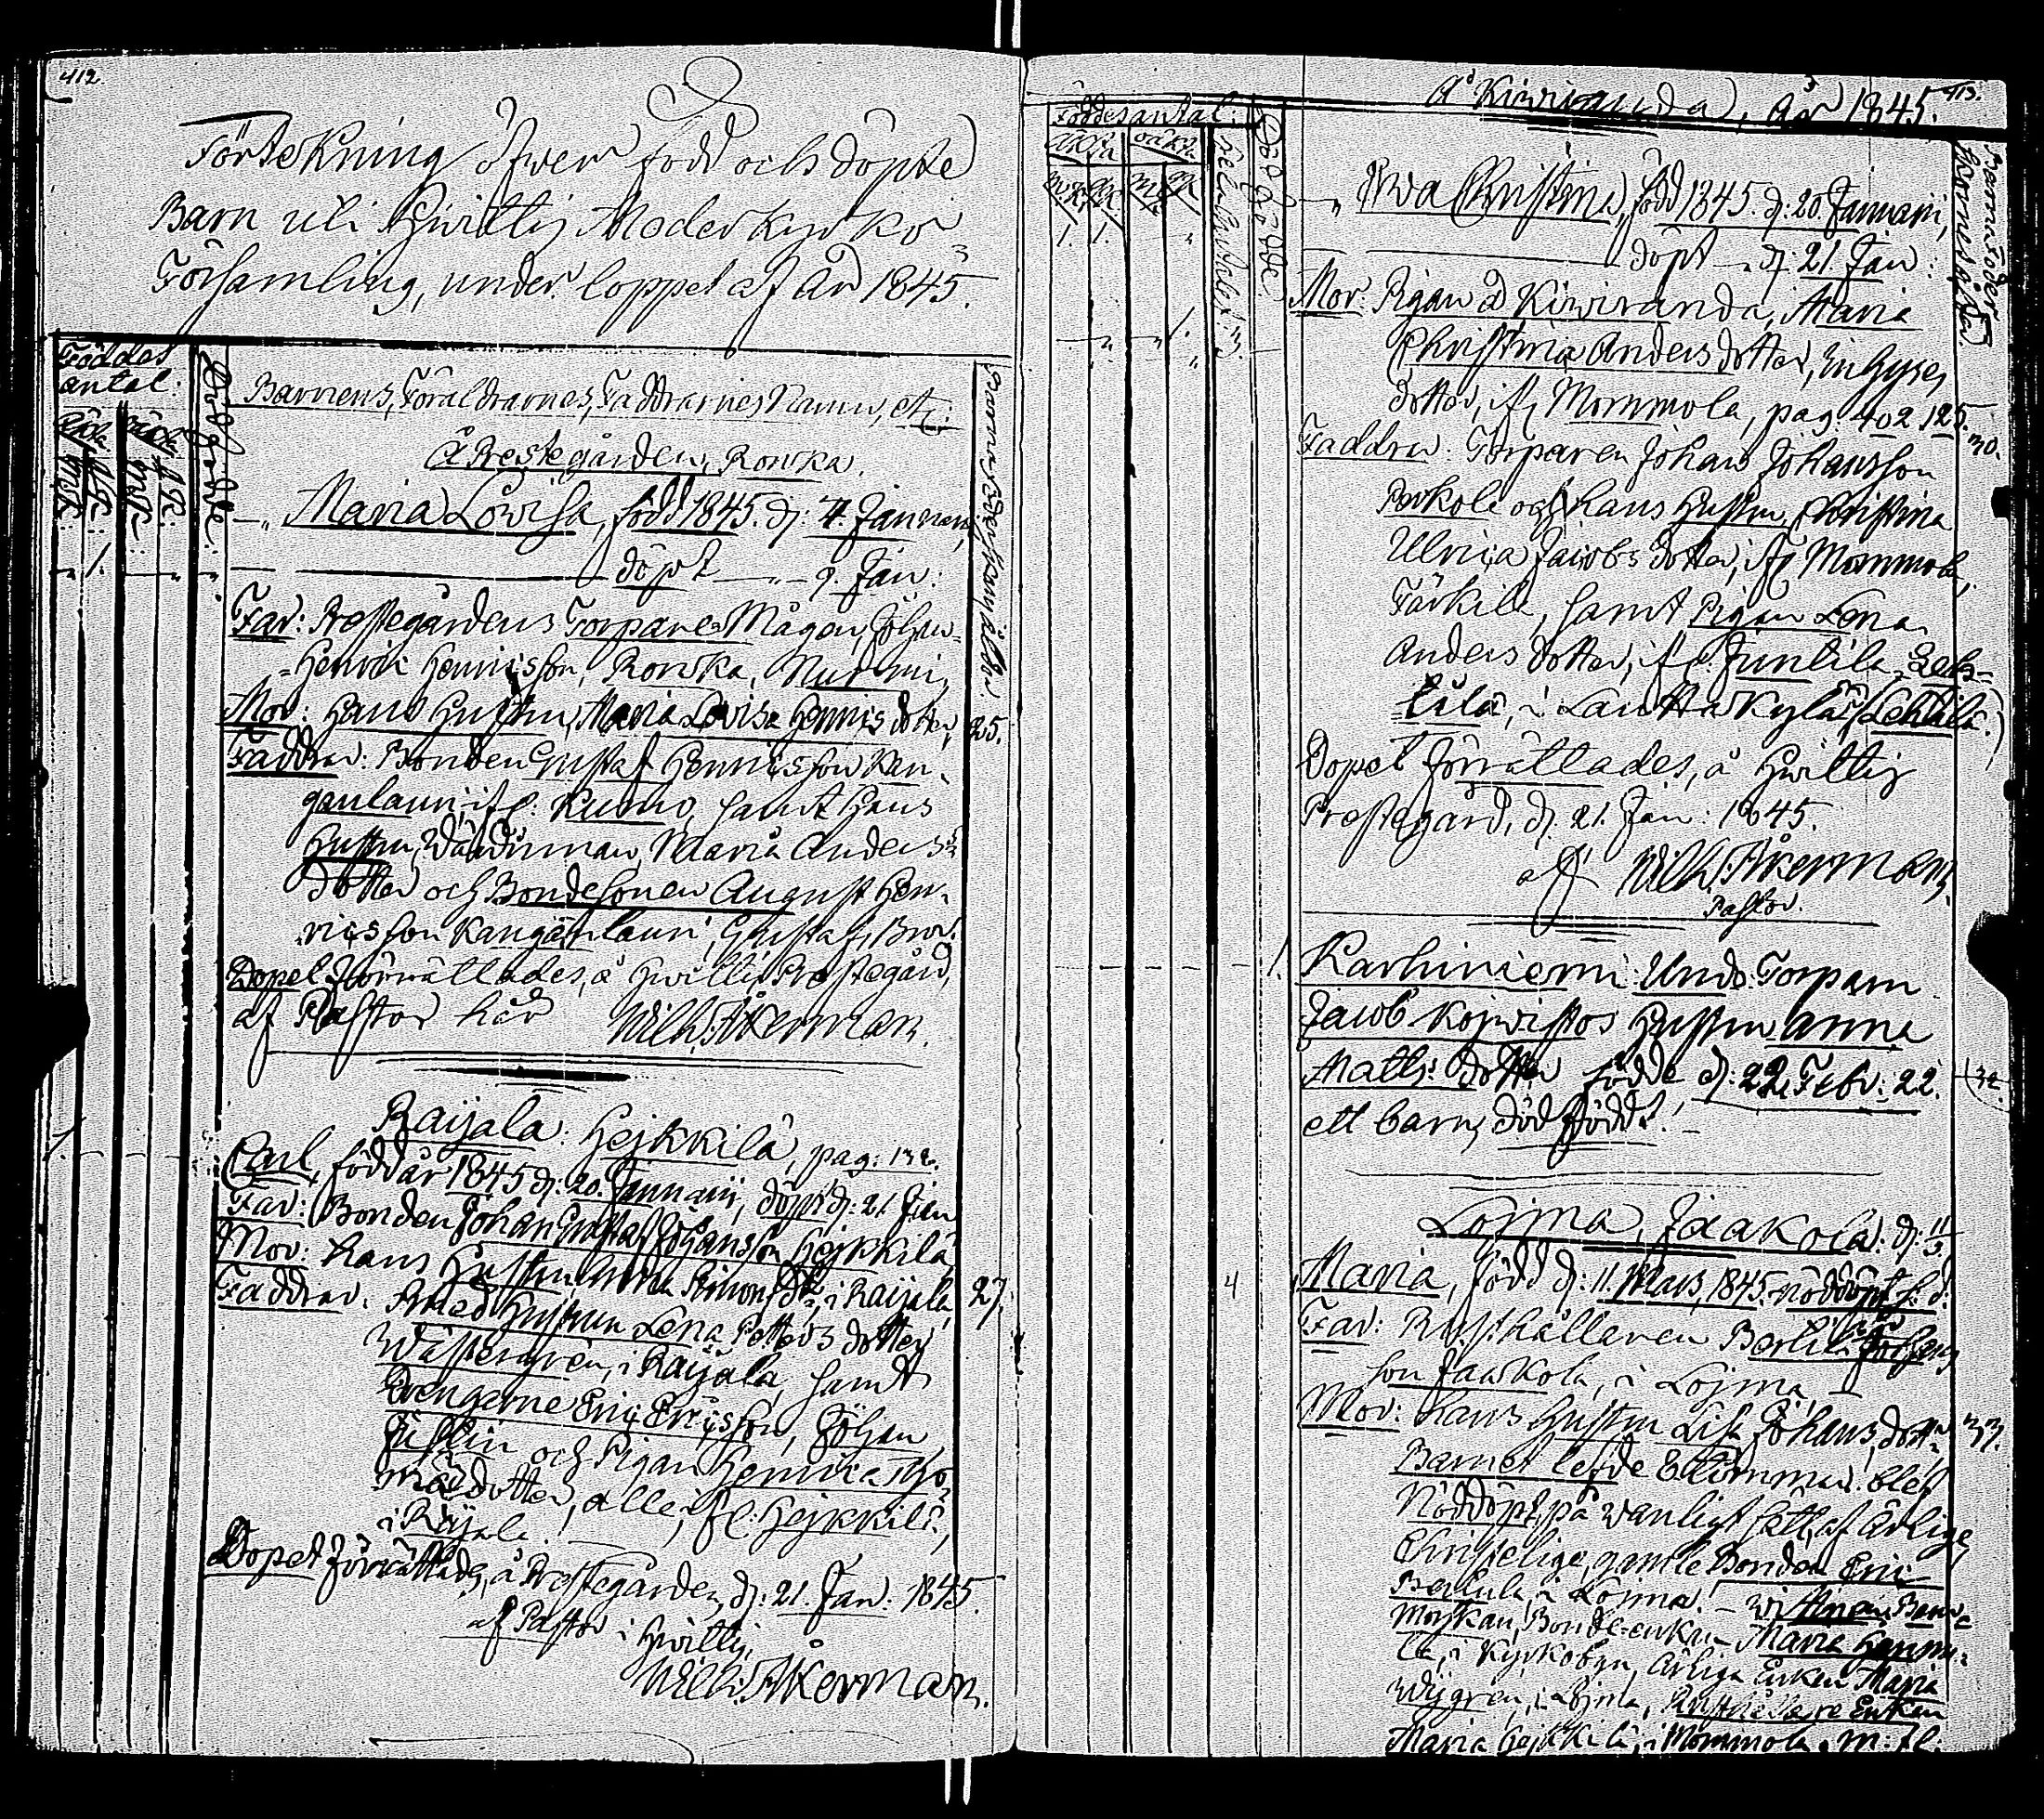 412.
Förtekning öfwer född och döpte
Barn uti Hwittis Moderkyrko
Församling, under loppet af år 1845.
Föddas
antal:
Dödfödde:
Barnens, Föräldrarnes, Faddrarnes Namn, etc:
å Prestegården, Rowka.
Maria Lovisa, född 1845. d: 4. Januarii,
döpt — 9. Jan:
Far: Prestegårdens Torpares Mågen, Johan
Henric Henricsson, Rowka, Nurmi,
Mor: Hans Hustru, Maria Lovisa Henricsdotter, 25.
Faddrar: Bonden Gustaf Henricsson Kan-
ganlauri, ifr: Kumo, samt Hans
Hustru, Wärdinnan, Maria Anders
dotter och Bondesonen August Hen-
ricsson Kanganlauri, Gustafs Bror.
Dopet förrättades, å Hwittis Prestegård,
af Pastor här Wilh: Åkerman.
Raijala. Hejkkilä, pag: 132.
Carl, född år 1845 d: 20. Januarii, döpt d: 21. Jan
Far: Bonden Johan Gustaf Johansson Hejkkilä
Mor: hans Hustru, Simonsdr, i Raijala, 27.
Faddrar: Smeds Hustrun Lena Petters dotter
Wästergren, i Raijala, samt
Drengarne Eric Ericsson, Johan
Justin och Pigan Henrica Tho-
mædotter, alle, ifr: Hejkkilä,
i Raijala.
Dopet förrättades, å Prestegården, d: 21. Jan: 1845.
af Pastor i Hwittis,
Wilh: Åkerman.
413.
å Kiwiranda, år 1845.
Föddes antal:
Dödfödde
äkta
oäkta
1. 1.
Ewa Christina, född 1845. d: 20. Januarii,
döpt — d: 21 Jan:
Mor: Pigan å Kiwiranda, Maria
Christina Andersdotter, Inhyses
dotter, ifr Mommola, pag: 402 125. 30.
Faddrar: Torparen Johan Johansson
Perkole och hans Hustru, Christina
Ulrica Jacobs dotter, ifr Mommola,
Tärkile, samt Pigan Lena
Anders dotter, ifr: Juntila,
tila, i Lauttakylä, Lehtilä.)
Dopet förrättades, å Hwittis
Prestegård, d: 21. Jan: 1845.
af Wilh: Åkerman,
Pastor.
1. Karhiniemi: Unds: Torparn
Jacob Kojwistos Hustru Anna
Matts: dotter födde d: 22. Febr: 22.
ett barn, dödfödd!
Lojma, Jaakola: d: 11/3
Maria, född d: 11. Mars, 1845. nöddöpt s: d:
Far: Rusthållaren Bertil Johans
son Jaakola, i Lojma,
Mor: hans Hustru Lisa Johans dotter 37.
4
Barnet lefde 6 timmar. blef
Nöddöpt, på wanligt sätt, af ärlige
Christelige, gamle Bonden Eric
Bertula, i Lojma. — Wittnen:
Moskan, Bonde-enkan Maria
la, i Kyrkobyn, ärliga Enkan Maria
Wigren, i Lojma, Enkan
Maria Hejkkilä, i Mommola, m: fl: